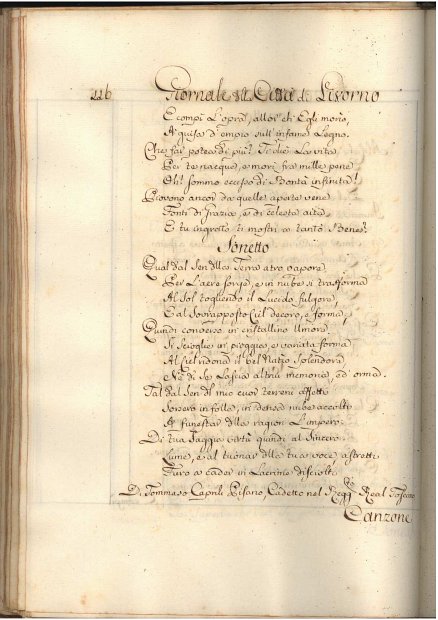 116 Giornale della Città di Livorno
E compì l'opra, allor ch'Egli morìo,
A guisa d'empio sull'infame Legno.
Che far potea di più? Ti diè la vita,
Per te nacque, e morì fra mille pene
Oh! sommo eccesso di Bontà infinita!
Piovono ancor da quelle aperte vene
Fonti di grazia, e di celeste aita,
E tu ingrato ti mostri a tanto Bene?
Sonetto
Qual dal Sen della Terra atro vapore
Per l'aere sorge, e in nube si trasforma
Al Sol togliendo il Lucido fulgore,
E al sovrapposto Ciel decoro, e forma,
Quindi converso in cristallino Umore
Si scioglie in pioggia, e variata forma
Al Ciel ridona il bel Natio Splendore
Nè di Se Lascia altrui memoria, ed orma.
Tal dal Sen del mio cuor terreni affetti
Sorsero in folla, in densa nube accolti
A funestar della ragion L'impero.
Di tua Saggia virtù quindi al Sincero
Lume, e al tuonar della tua voce astretti
Furo a cader in Lacrime disciolti
Di Tommaso Caprili Pisano, Cadetto nel Regg.to Real Toscano
Canzone